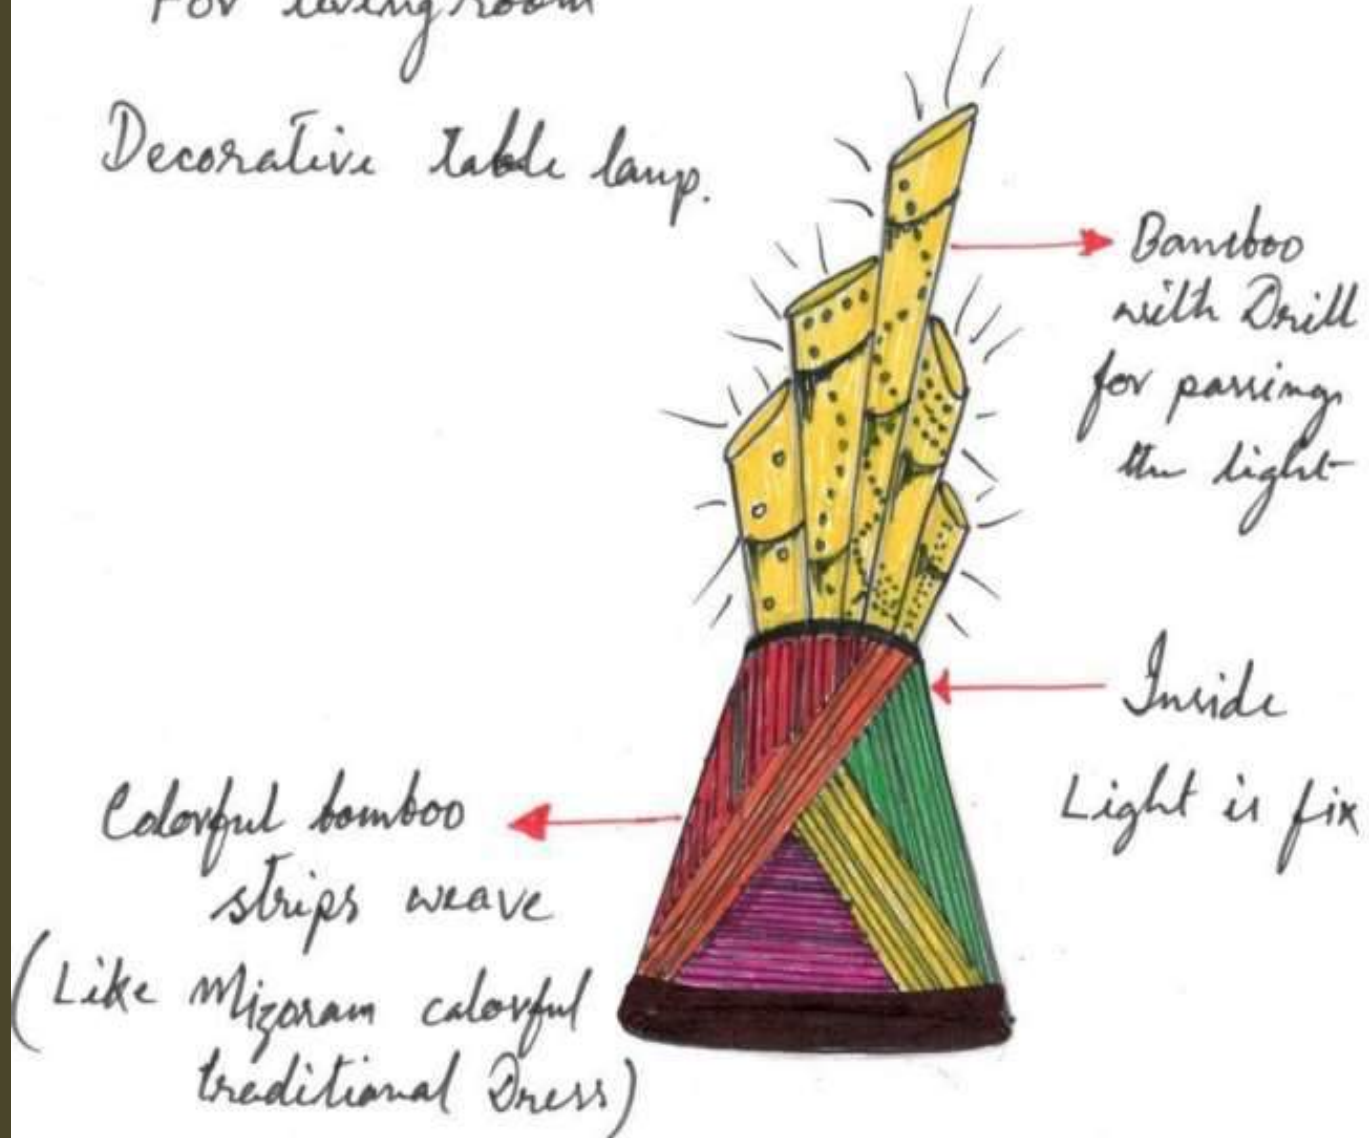 For living room
Decorative table lamp.
Bamboo
with Drill
for passing
the light
Inside
Light is fix
Colorful bomboo
strips weave
(Like Mizoram calorful
traditional Dress)